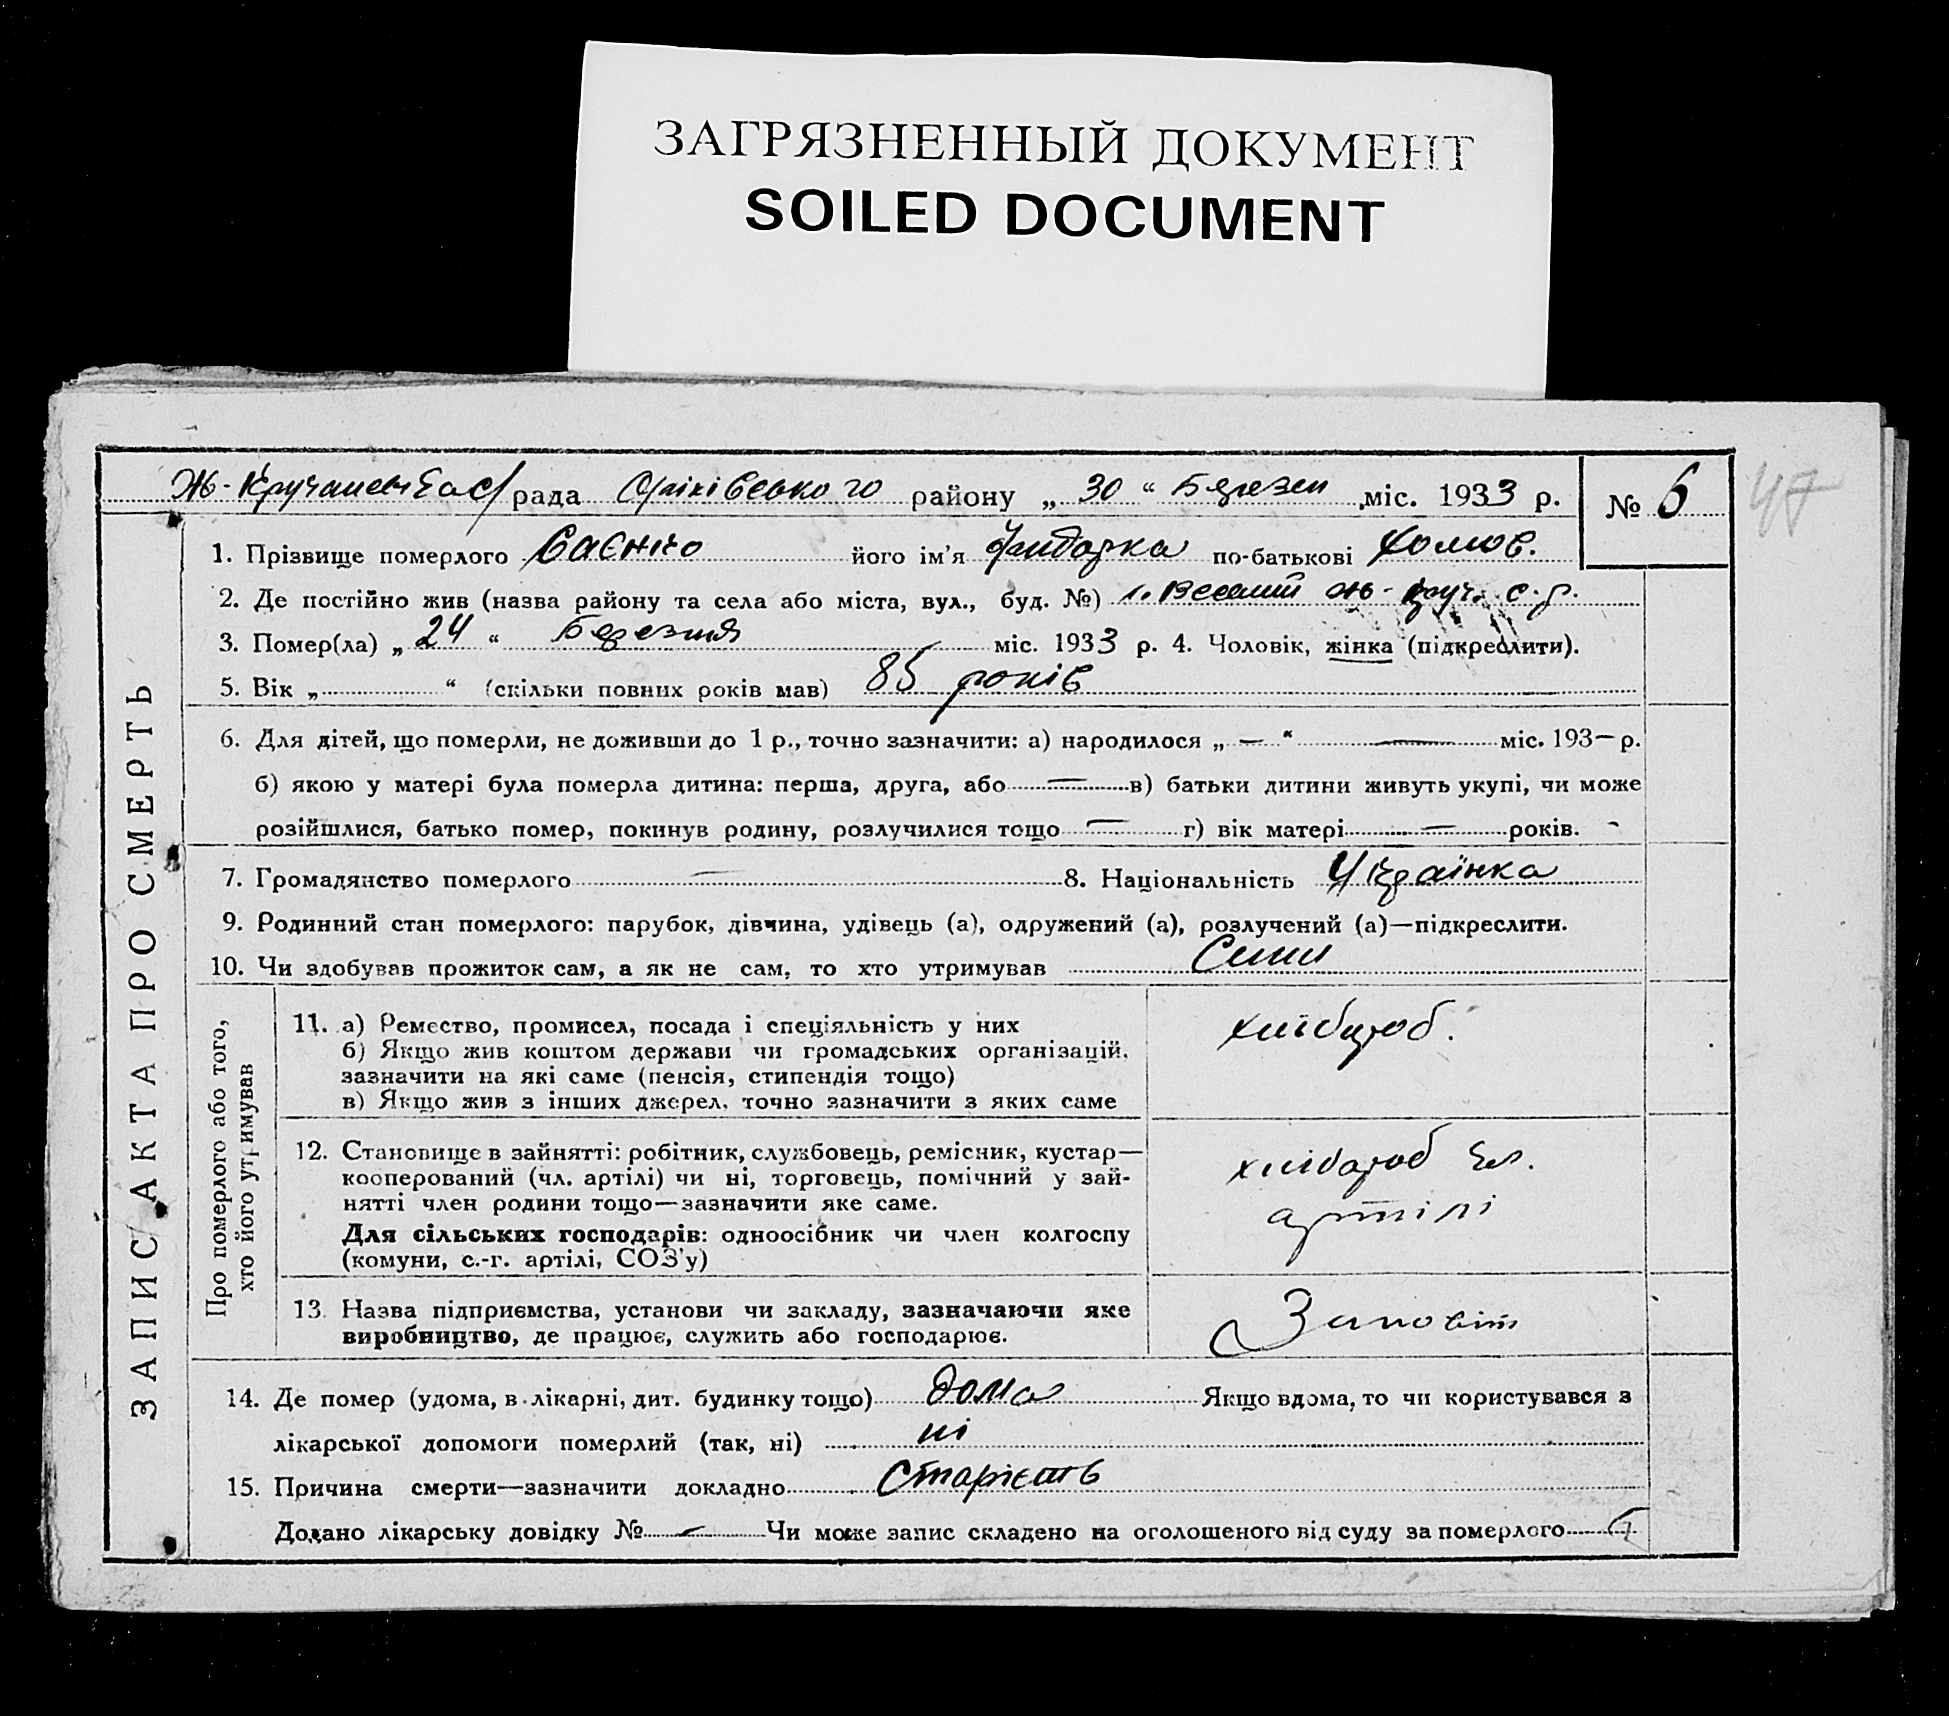 ЗАГРЯЗНЕННЫЙ ДОКУМЕНТ
SOILED DOCUMENT
рада району „ 30 “ Березня міс. 1933 р. № 6
47
ЗАПИС АКТА ПРО СМЕРТЬ
1. Прізвище померлого Саєнко його ім'я по-батькові
2. Де постійно жив (назва району та села або міста, вул., буд. №) с. р.
3. Помер(ла) „ 24 “ Березня міс. 1933 р. 4. Чоловік, жінка (підкреслити).
5. Вік „ “ (скільки повних років мав) 85 років
6. Для дітей, що померли, не доживши до 1 р., точно зазначити: а) народилося „ — “ — міс. 193— р.
б) якою у матері була померла дитина: перша, друга, або — в) батьки дитини живуть укупі, чи може
розійшлися, батько помер, покинув родину, розлучилися тощо — г) вік матері — років.
7. Громадянство померлого — 8. Національність Українка
9. Родинний стан померлого: парубок, дівчина, удівець (а), одружений (а), розлучений (а)—підкреслити.
10. Чи здобував прожиток сам, а як не сам, то хто утримував
Про померлого або того,
хто його утримував
11. а) Ремество, промисел, посада і спеціяльність у них
б) Якщо жив коштом держави чи громадських організацій,
зазначити на які саме (пенсія, стипендія тощо)
в) Якщо жив з інших джерел, точно зазначити з яких саме
хлібороб.
12. Становище в зайнятті: робітник, службовець, ремісник, кустар—
кооперований (чл. артілі) чи ні, торговець, помічний у зай-
нятті член родини тощо—зазначити яке саме.
Для сільських господарів: одноосібник чи член колгоспу
(комуни, с.-г. артілі, СОЗ'у)
хлібороб чл.
артілі
13. Назва підприємства, установи чи закладу, зазначаючи яке
виробництво, де працює, служить або господарює.
Заповіт
14. Де помер (удома, в лікарні, дит. будинку тощо) дома Якщо вдома, то чи користувався з
лікарської допомоги померлий (так, ні) ні
15. Причина смерти—зазначити докладно старість
Додано лікарську довідку № — Чи може запис складено на оголошеного від суду за померлого